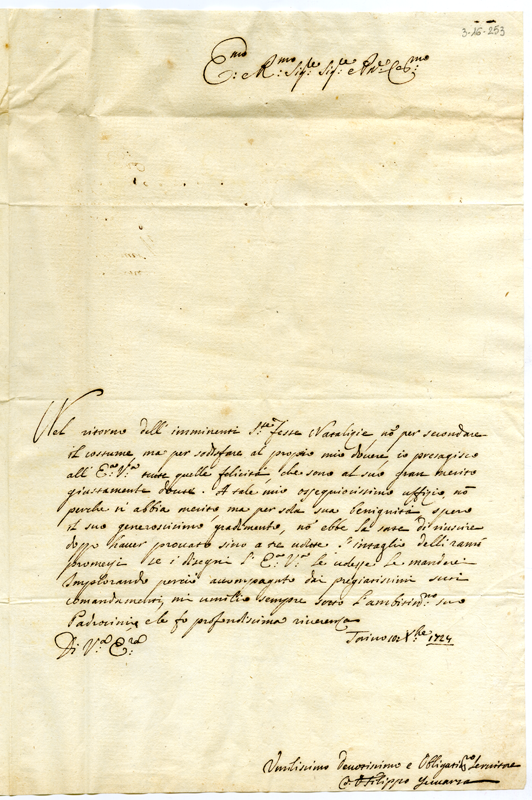 3-16-253
E.mo e R.mo Sig.re Sig.re e P.ne Col.mo
Nel ritorno dell' imminenti S.te Feste Natalizie, nō per secondare
il costume, ma per sodisfare al proprio mio dovere io presagisco
all' E.za V.ra tutte quelle felicità, che sono al suo gran merito
giustamente dovute. A tale mio ossequiosissimo uffizio, nō
perche n' abbia merito ma per sola sua benignità, spero
il suo generosissimo gradimento, nō ebbe la sorte di riuscire
doppo haver provato sino a tre volte l'intaglio delli rami
promessi se i disegni l' E.za V.ra le volesse le manderei
Implorando perciò accompagnato dai pregiatissimi suoi
comandamenti, mi umilio sempre sotto l'ambitiss.mo suo
Padrocinio e le fo profondissima riverenza
Di V.ra E.za
Torino 10 X.bre 1724
Umilissimo Devotissimo e Obligatis.mo Servitore
D. Filippo Juvarra